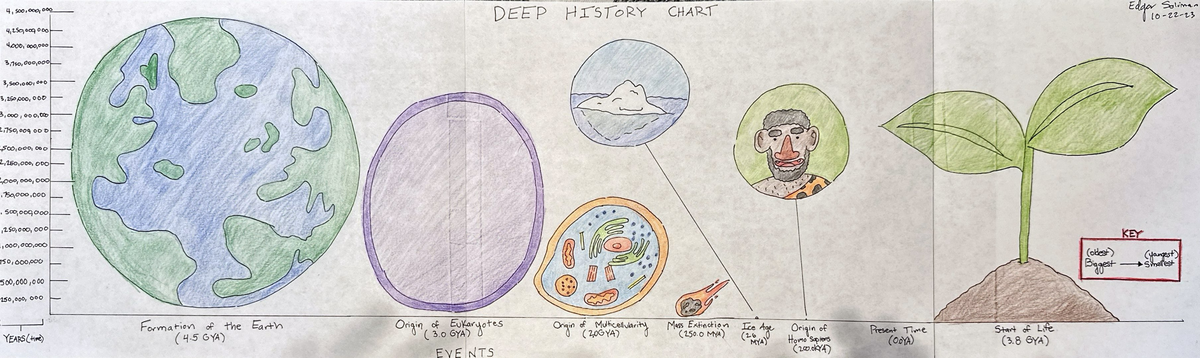 DEEP HISTORY CHART
Edgar Soliman
10-22-23
4,500,000,000
4,250,000,000
4,000,000,000
3,750,000,000
3,500,000,000
3,250,000,000
3,000,000,000
2,750,000,000
2,500,000,000
2,250,000,000
2,000,000,000
1,750,000,000
1,500,000,000
1,250,000,000
1,000,000,000
750,000,000
500,000,000
250,000,000
YEARS (time)
KEY
(oldest) (youngest)
Biggest → Smallest
Formation of the Earth
(4.5 GYA)
Origin of Eukaryotes
(3.0 GYA)
Origin of Multicellularity
(2.0GYA)
Mass Extinction
(250.0 MYA)
Ice Age
(2.6
MYA)
Origin of
Homo Sapiens
(200.0KYA)
Present Time
(0.0YA)
Start of Life
(3.8 GYA)
EVENTS